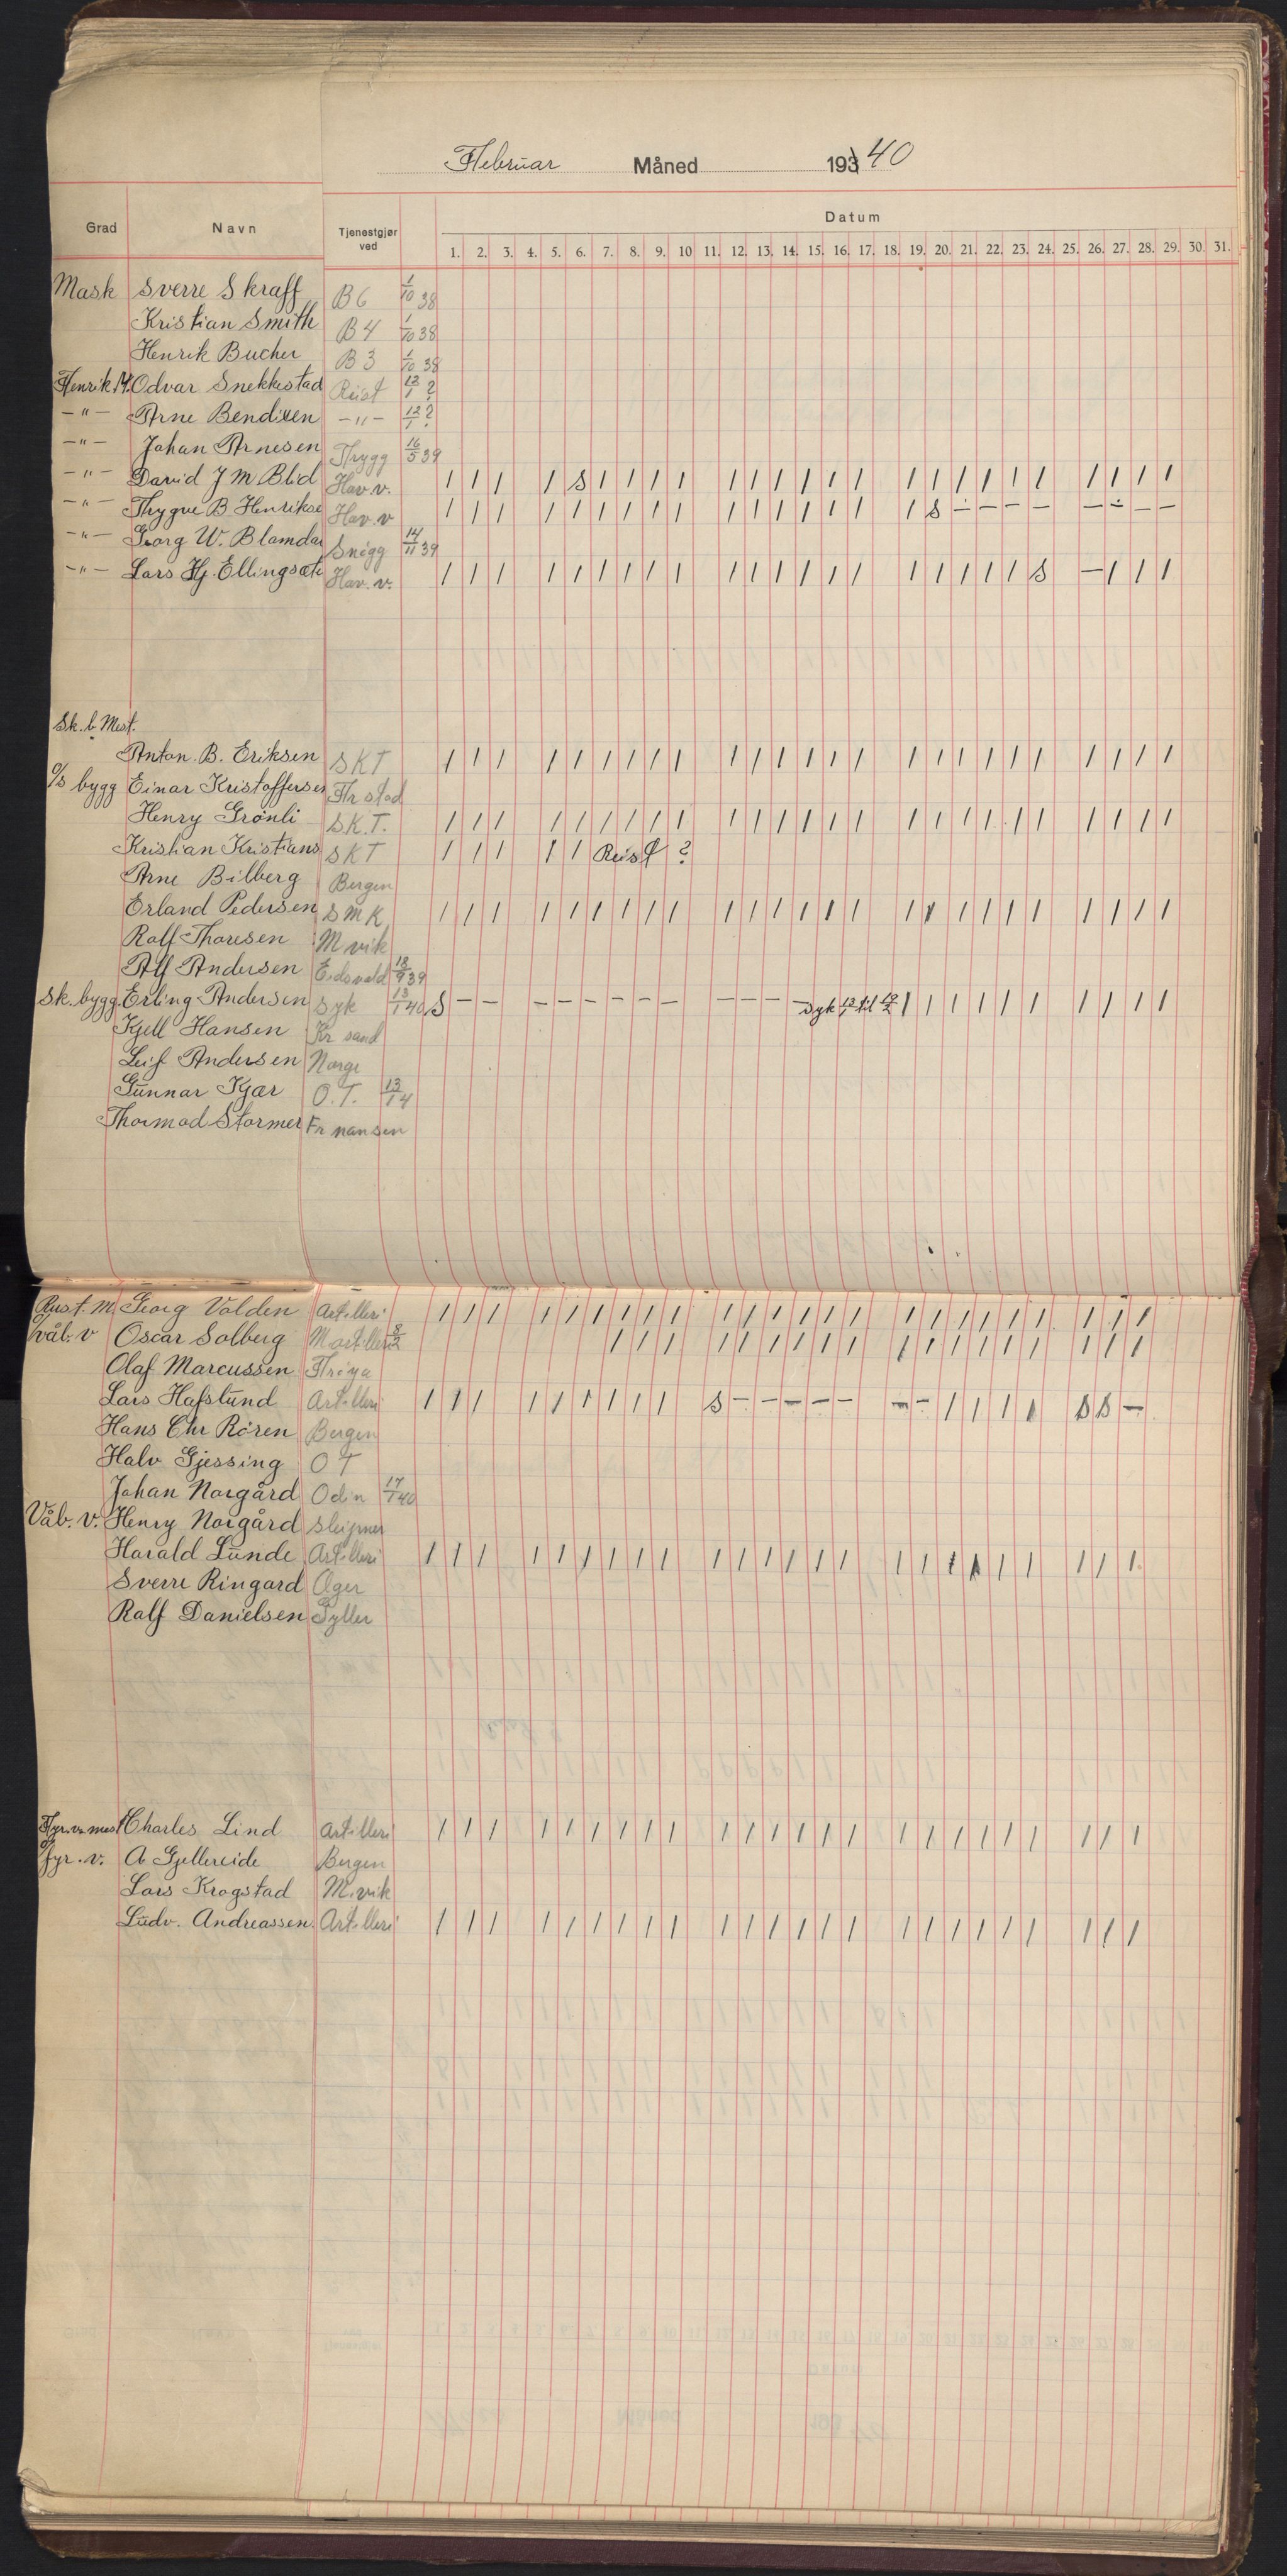 Februar Måned 193 40
Grad Navn Tjenestgjør ved Datum
1. 2. 3. 4. 5. 6. 7. 8. 9. 10 11. 12. 13. 14. 15. 16. 17. 18. 19. 20. 21. 22. 23. 24. 25. 26. 27. 28. 29. 30. 31.
Mask Sverre Skraff B 6 1/10 38
Kristian Smith B 4 1/10 38
Henrik Bucher B 3 1/10 38
Henrik M. Odvar Snekkestad Reist 12/1 ?
-"- Arne Bendixen -"- 12/1 ?
-"- Johan Arnesen Trygg 16/5 39
-"- David J M Blid Hav. v. 1 1 1 1 S 1 1 1 1 1 1 1 1 1 1 1 1 1 1 1 1 1 1 1 1 1
-"- Thygve B. Henrikse Hav. v 1 1 1 1 1 1 1 1 1 1 1 1 1 1 1 1 S - - - - - - - -
-"- Georg W. Blamda Snøgg 14/11 39
-"- Lars Hj. Ellingsæte Hav. v. 1 1 1 1 1 1 1 1 1 1 1 1 1 1 1 1 1 1 1 1 S - 1 1 1
Sk. b Mest.
Anton. B. Eriksen S K T 1 1 1 1 1 1 1 1 1 1 1 1 1 1 1 1 1 1 1 1 1 1 1 1 1
o/s bygg Einar Kristoffersen Fr stad
Henry Grønli S. K. T. 1 1 1 1 1 1 1 1 1 1 1 1 1 1 1 1 1 1 1 1 1 1 1 1 1
Kristian Kristians S K T 1 1 1 1 1 Reist ?
Arne Bilberg Bergen
Erland Pedersen S M K 1 1 1 1 1 1 1 1 1 1 1 1 1 1 1 1 1 1 1 1 1 1 1 1 1
Rolf Thoresen M vik
Alf Andersen Eidsvold 18/9 39
Sk. bygg. Erling Andersen Syk 13/1 40 S - - - - - - - - - - - - Syk 13/1 til 19/2 1 1 1 1 1 1 1 1 1 1
Kjell Hansen Kr sand
Leif Andersen Norge
Gunnar Kjær O. T. 13/1 4
Thormod Stormer Fr nansen
Rust. M. Georg Valden Artilleri 1 1 1 1 1 1 1 1 1 1 1 1 1 1 1 1 1 1 1 1 1 1 1 1
o/våb. v Oscar Solberg M artilleri 8/2 1 1 1 1 1 1 1 1 1 1 1 1 1 1 1 1 1 1
Olaf Marcussen Frøya
Lars Hafslund Artilleri 1 1 1 1 1 1 1 1 1 S - - - - - - - 1 1 1 1 S S -
Hans Chr Røren Bergen
Halv Gjessing O T
Johan Norgård Odin 17/1 40
Våb. v. Henry Norgård Sleipner
Harald Lunde Artilleri 1 1 1 1 1 1 1 1 1 1 1 1 1 1 1 1 1 1 1 1 1 1 1 1
Sverre Ringard Æger
Ralf Danielsen Gyller
Fyr. v. mest Charles Lind Artilleri 1 1 1 1 1 1 1 1 1 1 1 1 1 1 1 1 1 1 1 1 1 1 1 1
o/fyr. v. A Gjellereide Bergen
Lars Krogstad M. vik
Ludv. Andreassen. Artilleri 1 1 1 1 1 1 1 1 1 1 1 1 1 1 1 1 1 1 1 1 1 1 1 1